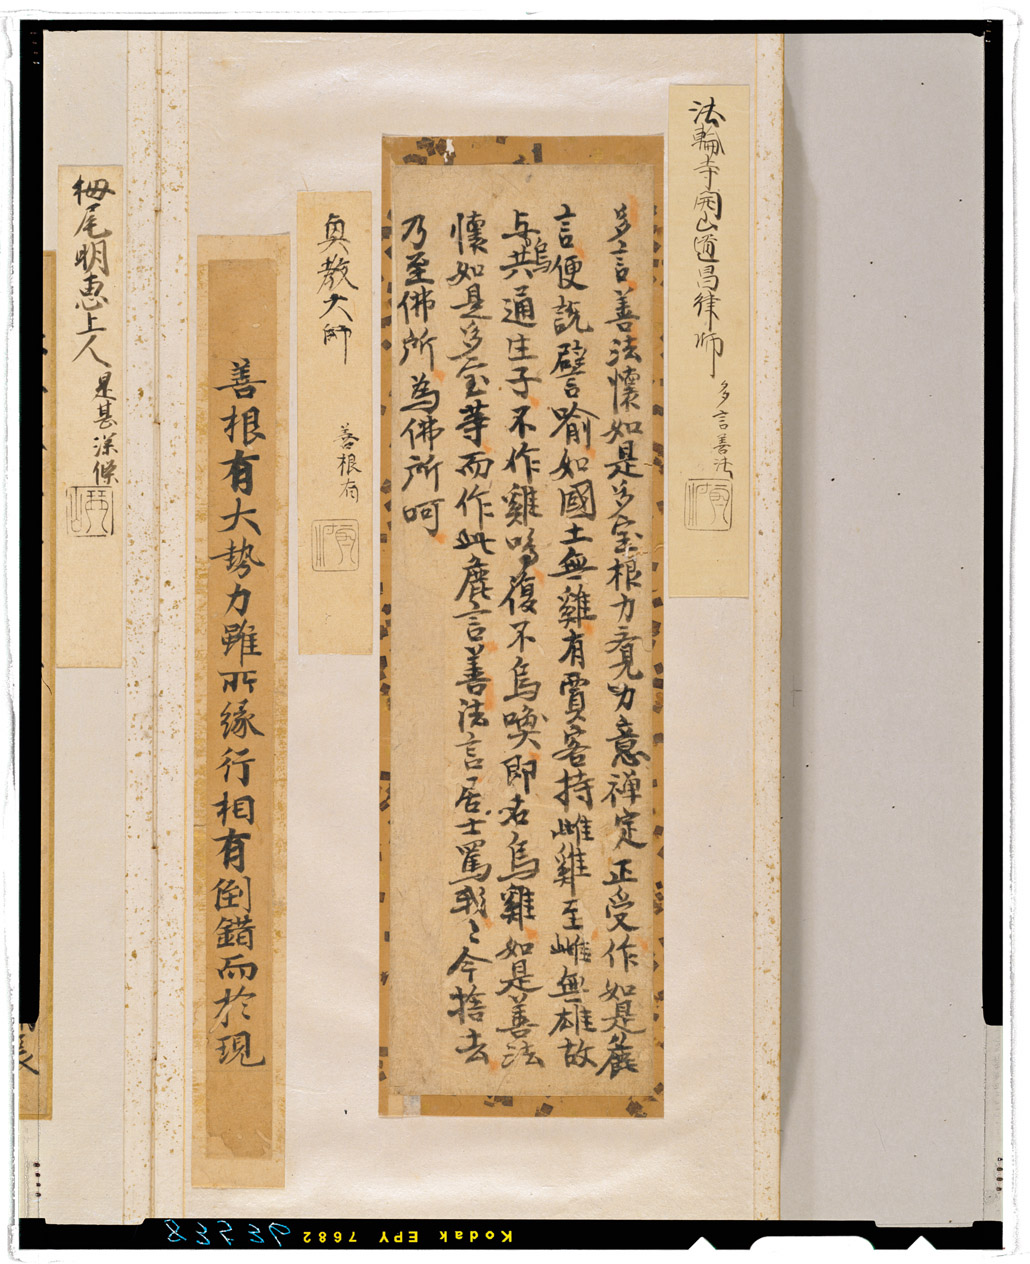 法輪寺開山道昌律师
多言善法
多言善法懐如是多宝根力覚力意禅定正受作如是麁
言便説譬喻如國土無雞有賈客持雌雞至雌無雄故
烏
与共通生子不作雞鳴復不烏喚即名烏雞如是善法
懐如是多宝等而作此麁言善法言居士罵我〻今捨去
乃至佛所為佛所呵
奥教大師
善根有
善根有大勢力雖所緣行相有倒錯而於現
栂尾明恵上人
是甚深條
Kodak EPY 7682